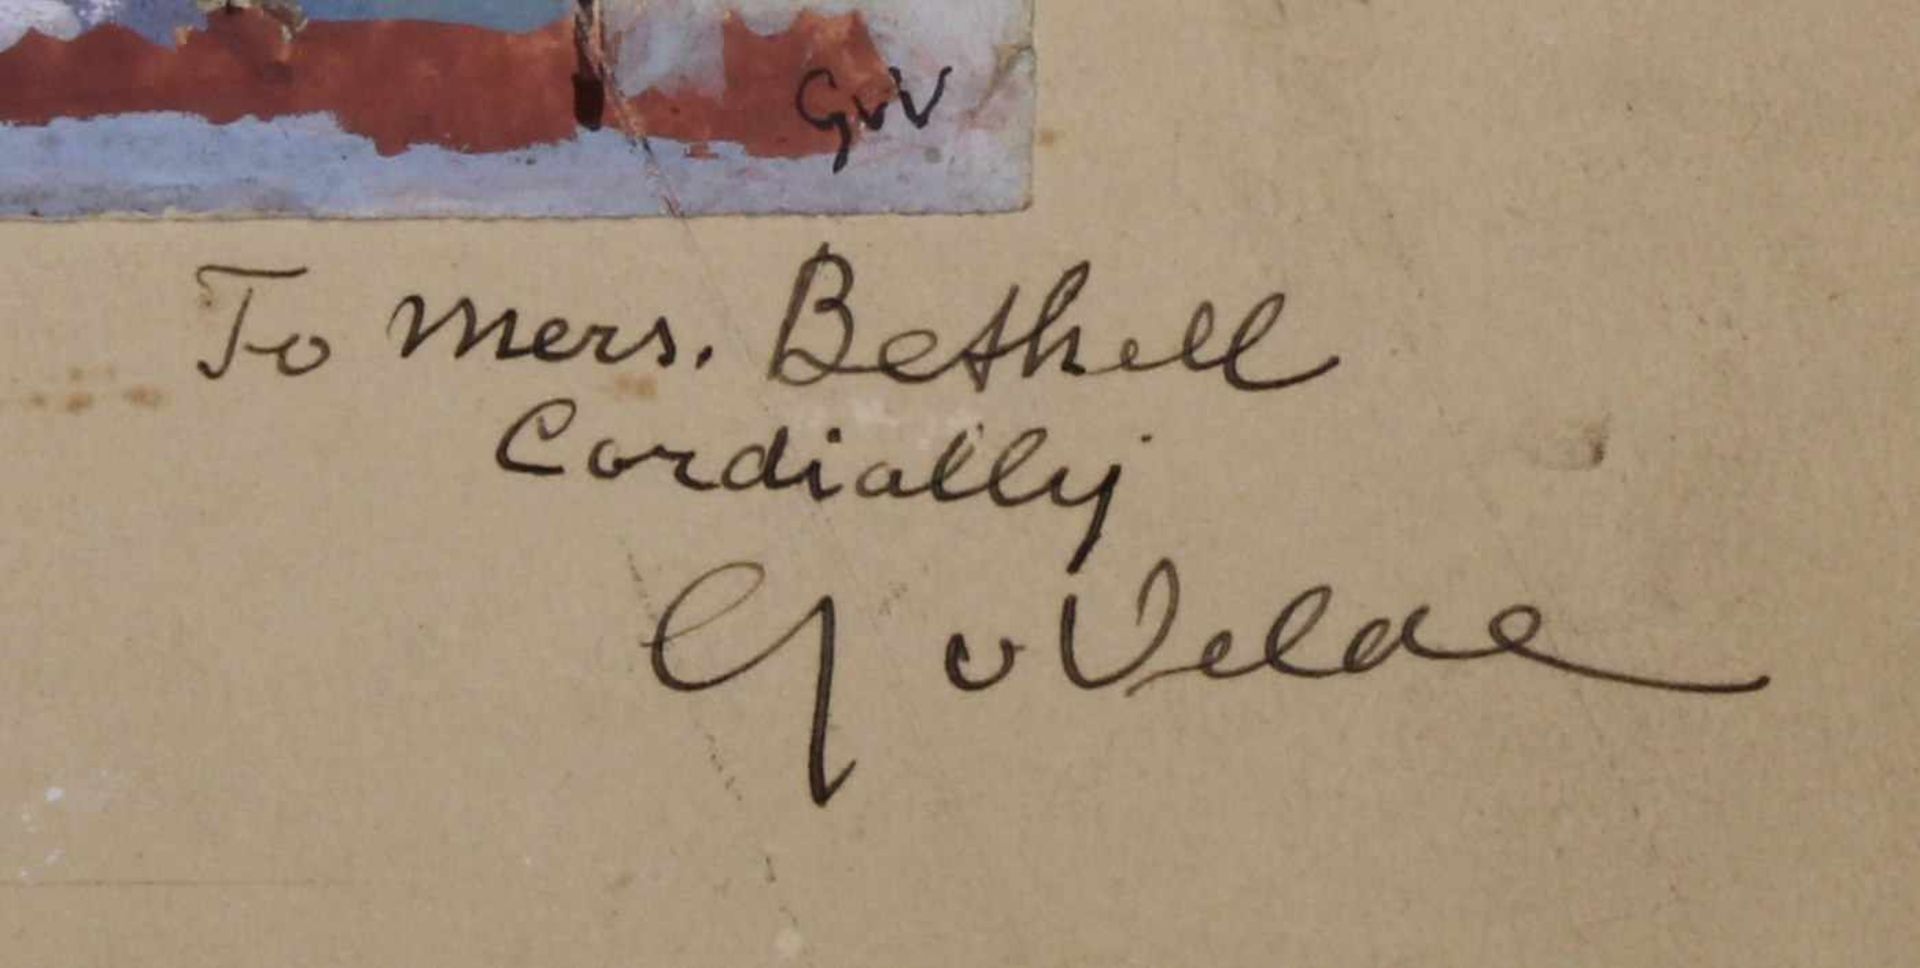 GvV
To Mers. Bethell
Cordially
G v Velde